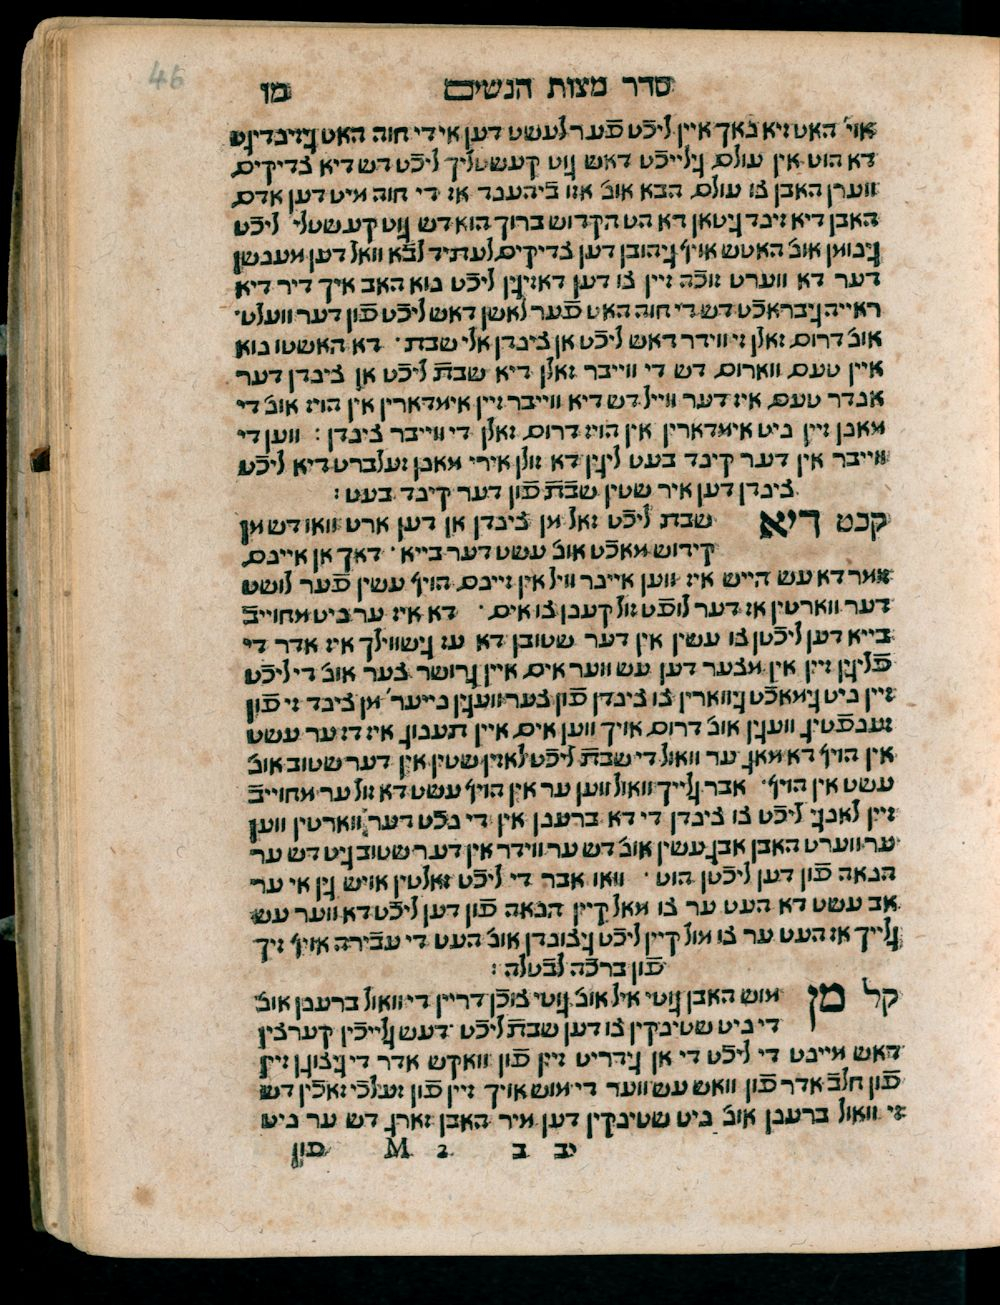 46
סדר מצות הנשים מו
אוי׳ האט זיא נאך איין ליכֿט פֿער לעשט דען אידי חוה האט גיזינדיגט
דא הוט אין עולם גילייכֿט דאש גוט קעשטליך ליכֿט דש דיא צדיקים
ווערן האבן צו עולם הבא אונ׳ אזו ביהענד אז די חוה מיט דען אדם
האבן דיא זינד גיטאן דא הט הקדוש ברוך הוא דש גוט קעשטלי׳ ליכֿט
גינומן אונ׳ האטש אויף גיהובן דען צדיקים לעתיד לבֿא וואל דען מענשן
דער דא ווערט זוכה זיין צו דען דאזיגין ליכֿט נוא האב איך דיר דיא
ראייה גיבראכֿט דש די חוה האט פֿער לאשן דאש ליכֿט פֿון דער וועלט׳
אונ׳ דרום זאלן זי ווידר דאש ליכֿט אן צינדן אלי שבת׳ דא האשטו נוא
איין טעם ווארום דש די ווייבר זאלן דיא שבת ליכֿט אן צינדן דער
אנדר טעם איז דער ווייל דש דיא ווייבר זיין אימדארין אין הויז אונ׳ די
מאנן זיין ניט אימדארין אין הויז דרום זאלן די ווייבר צינדן : ווען די
ווייבר אין דער קינד בעט ליגין דא זולן אירי מאנן זעלברט דיא ליכֿט
צינדן דען איר שטין שבת פֿון דער קינד בעט :
קנט דיא שבת ליכֿט זאל מן צינדן אן דען ארט וואו דש מן
קידוש מאכֿט אונ׳ עשט דער בייא׳ דאך אן איינם
אמר דא עש הייש איז ווען איינר וויל אין זיינם הויף עשין פֿער לושט
דער ווארטין אז דער לופֿט זול קענן צו אים ׳ דא איז ער ניט מחוייבֿ
בייא דען ליכֿטן צו עשין אין דער שטובן דא עז גישווילך איז אדר די
פֿליגין זיין אין מצער דען עש ווער אים איין גרושר צער אונ׳ די ליכֿט
זיין ניט גימאכֿט גיווארין צו צינדן פֿון צער וועגין נייער׳ מן צינד זי פֿון
זענפֿטיג וועגין אונ׳ דרום אויך ווען אים איין תענוג איז דז ער עשט
אין הויף דא מאג ער וואול די שבת ליכֿט לאזין שטין אין דער שטוב אונ׳
עשט אין הויף׳ אבר גלייך וואול ווען ער אין הויף עשט דא זול ער מחוייבֿ
זיין לאנג ליכֿט צו צינדן די דא ברענן אין די נכֿט דער ווארטין ווען
ער ווערט האבן אבן עשין אונ׳ דש ער ווידר אין דער שטוב גיט דש ער
הנאה פֿון דען ליכֿטן הוט ׳ וואו אבר די ליכֿט זאלטין אויש גין אי ער
אב עשט דא העט ער צו מאל קיין הנאה פֿון דען ליכֿט דא ווער עש
גלייך אז העט ער צו מול קיין ליכֿט גיצונדן אונ׳ העט די עבֿירה אויף זיך
פֿון ברכֿה לבֿטלה :
קל מן מוש האבן גוטי איל אונ׳ גוטי צוכֿן דריין די וואול ברענן אונ׳
די ניט שטינקין צו דען שבת ליכֿט ׳ דעש גלייכֿין קערצין
דאש מיינט די ליכֿט די אן גידריט זיין פֿון וואקש אדר די גיצוגן זיין
פֿון חלבֿ אדר פֿון וואש עש ווער די מוש אויך זיין פֿון זעלכֿי זאכֿין דש
זי וואול ברענן אונ׳ ניט שטינקין דען מיר האבן זארג דש ער ניט
יב ב 2 M פֿון